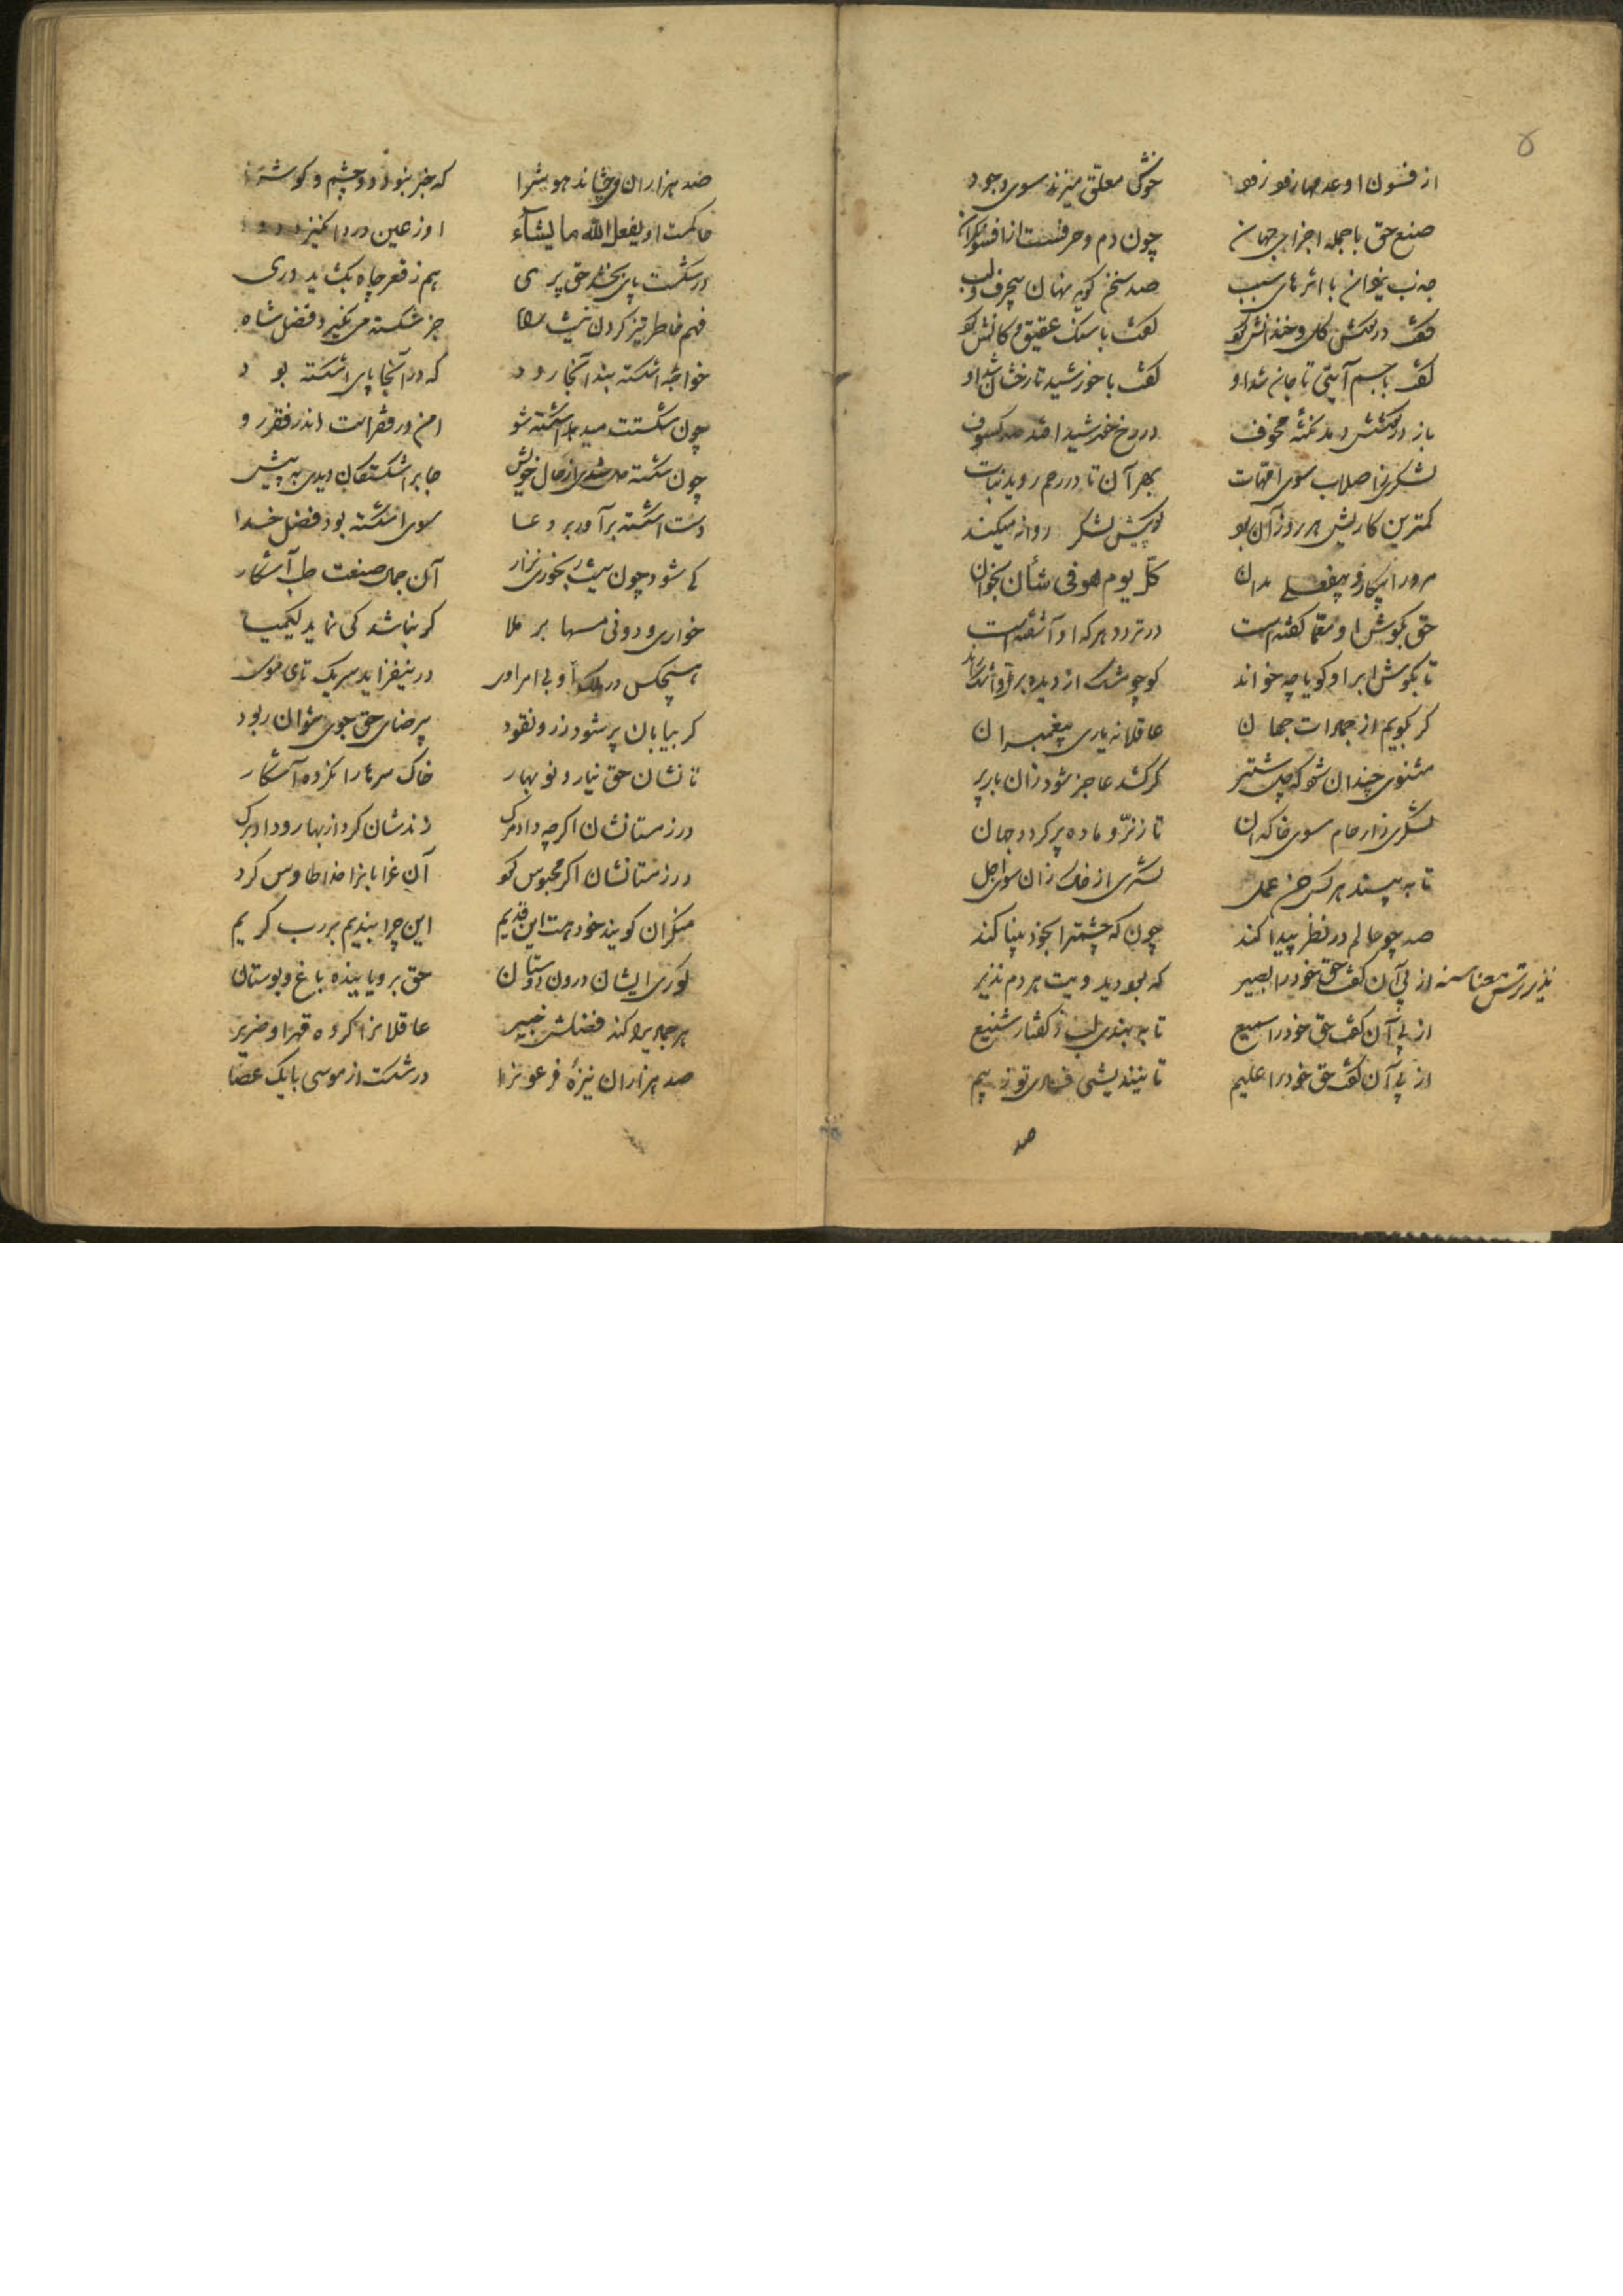 ۵
از فسون او عدمها زود زود خوش معلق میزند سوی وجود
صنع حق با جمله اجزای جهان چون دم و حرفست از افسونگران
جذب یزدان با اثرهای سبب صد سخن گوید نهان بیحرف و لب
گفت در گوش گل و خندانش کرد گفت با سنگ و عقیق کانش کرد
گفت با جسم آیتی تا جان شد او گفت با خورشید تا رخشان شد او
باز در گوشش دمد نکتهٔ مخوف در رخ خورشید افتد صد کسوف
لشکری ز اصلاب سوی امهات بهر آن تا در رحم روید نبات
کمترین کاریش هر روز آن بود کویش لشکر روانه میکند
مرورا بیکار و بیفعلی مدان کل یوم هو فی شأن بخوان
حق بگوش او معما گفته است در تردد هر که او آشفته است
تا بگوش ابر او گویا چه خواند کو چو مشک از دیده بر
گر بگویم از جمادات جهان عاقلانه یاری پیغمبران
مثنوی چندان شود که چل شتر گر کشد عاجز شود زان بار پر
لشکری ز ارحام سوی خاکدان تا ز نرّ و ماده پر گردد جهان
تا به بیند هر کسی حسن عمل لشکری از خاک زان سوی اجل
صد چو عالم در نظر پیدا کند چون که چشمترا بخود بینا کند
از پی آن گفت حق خود را بصیر که بود دید ویت هر دم نذیر
نذیر ترس معناسنه
از پی آن گفت حق خود را سمیع تا به بندی لب ز گفتار شنیع
از پی آن گفت حق خود را علیم تا نیندیشی فسادی تو ز بیم
صد
صد هزاران می چشاند هوشرا که خبر نبود دو چشم و گوشرا
حاکمست او یفعل الله ما یشآء او ز عین درد انگیزد دوا
در شکست پای بخشد حق پری هم ز قعر چاه بگشاید دری
فهم خاطر تیز کردن نیست راه جز شکسته می نگیرد فضل شاه
خواجه اشکسته بند آنجا رود که در آنجا پای اشکسته بود
چون شکستت میرهد اشکسته شو امن در فقر است اندر فقر رو
چون شکسته دل شدی از حال خویش جابر اشکستگان دیدی به پیش
دست اشکسته برآور در دعا سوی اشکسته بود فضل خدا
کی شود چون نیست رنجور نزار آن جمال صنعت طب آشکار
خواری و دونی مسها بر ملا گر نباشد کی نماید کیمیا
هیچکس در ملک او بی امر او در نیفزاید سر یک تای مو
گر بیابان پر شود زر و نقود بی رضای حق جوی نتوان ربود
تا نشان حق نیارد نو بهار خاک سرها را نکرده آشکار
در زمستانشان اگرچه داد مرگ زندشان کرد از بهار و داد برگ
در زمستانشان اگر محبوس کرد آن غرابانرا خدا طاوس کرد
منکران گویند خود هست این قدیم این چرا بندیم بر رب کریم
کوری ایشان درون دوستان حق برویانیده باغ و بوستان
هر جمادیرا کند فضلش خبیر عاقلانرا کرده قهر او ضریر
صد هزاران نیزهٔ فرعونرا در شکست از موسی با یک عصا